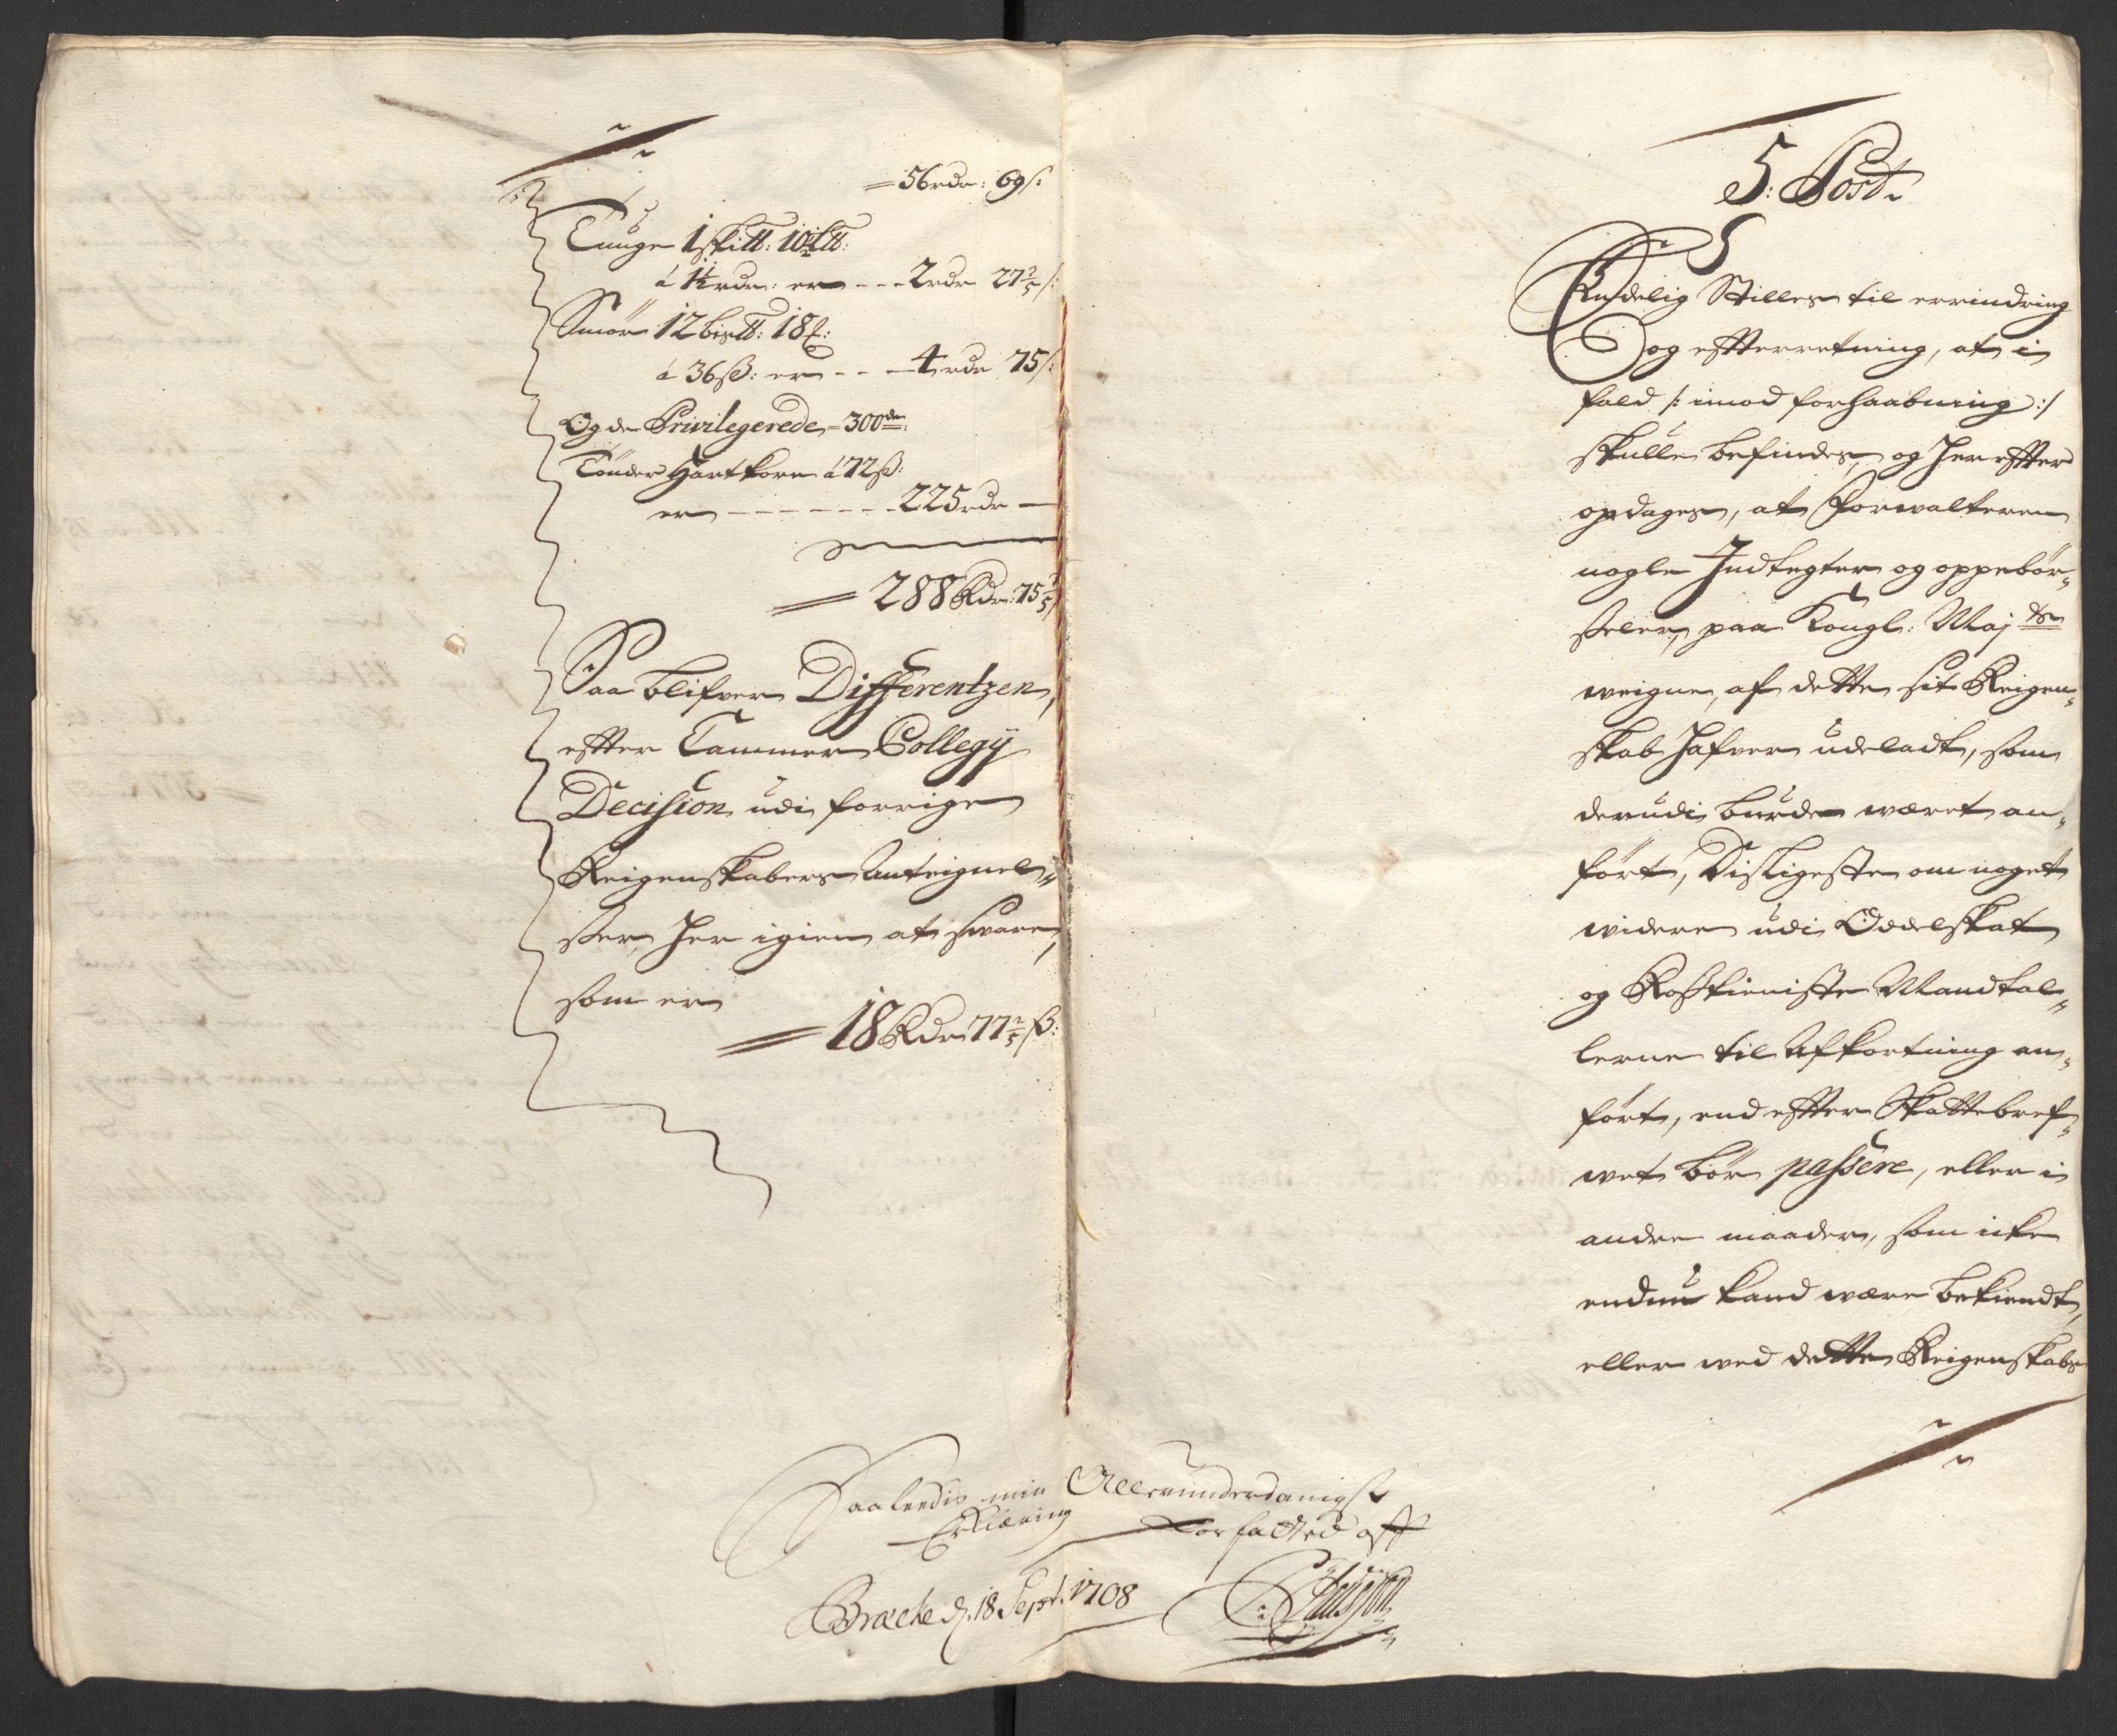 = 56 rdr: 69 s:
Tunge 1 skitt: 10½ ltt:
á 1½ rdr: er - - - 2 rdr 27 3/5 s:
Smör 12 bistt: 18
á 36 sß: er - - - 4 rdr 75 s:
Og de Privilegerede = 300de:
Tönder Hartkorn á 72 ß:
er - - - - - - - 225 rdr —
= 288 Rdr: 75 3/5
Saa blifver Differentzen,
effter Cammer Collegÿ
Decision udi forrige
Reigenskabers Anteignel=
ser, her igien at svare,
som er
= 18 Rdr 77 2/5 ß:
5: Post.
Endelig Stilles til errindring
og effterretning, at i
fald /: imod forhaabning :/
skulle befindes, og her effter
opdages, at Forvalteren
nogle Indtegter og oppebör=
seler, paa Kongl: Maj ts
weigne, af dette sit Reigen=
skab hafver udeladt, som
derudi burde været an=
fört, Disligeste om noget
widere udi Oddelskat
og Rosstieniste Mandtal=
lerne til Afkortning an=
fört, end effter Skattebref=
wet bör passere, eller i
andre maader, som icke
endnu kand være bekiendt,
eller wed dette Reigenskabs
Saaledis min Allerunderdanigste
Erklæring forfatted aff
Bracke d. 18 Sept. 1708